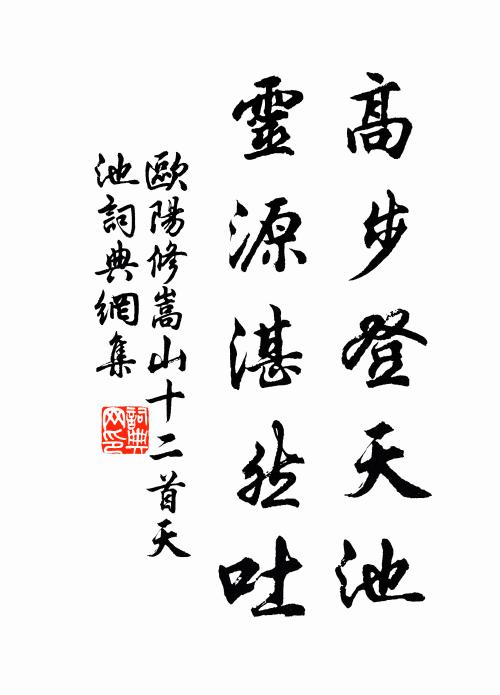 高步登天池
靈源湛然吐
歐陽修嵩山十二首天
池詞典網集
詞典网印